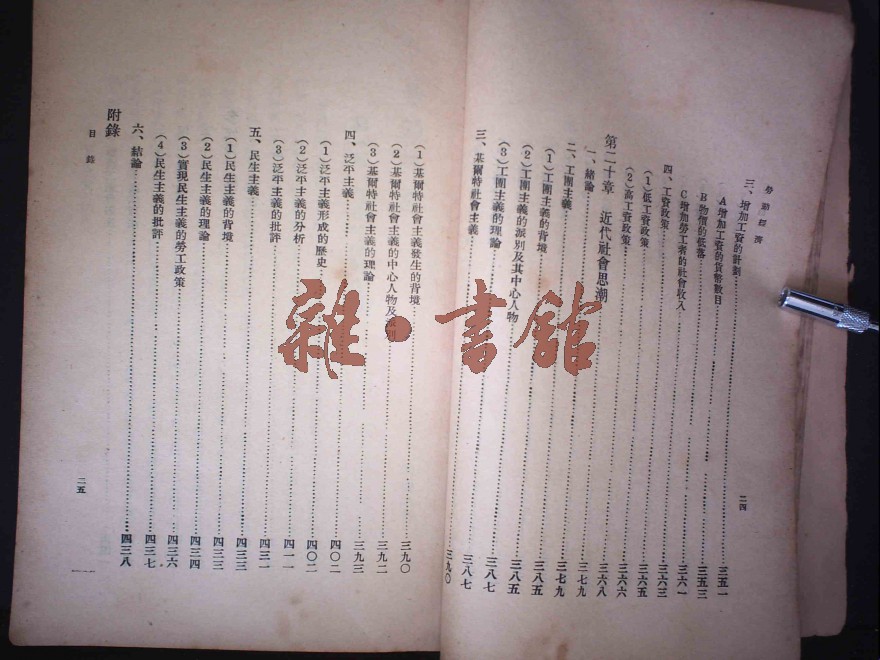 勞動經濟
二四
三、增加工資的計劃……三五一
A增加工資的貨幣數目……三五三
B物價的低落……三六一
C增加勞工者的社會收入……三六三
四、工資政策……三六五
(1)低工資政策……三六六
(2)高工資政策……三六八
第二十章 近代社會思潮
一、緒論……三七九
二、工團主義……三七九
(1)工團主義的背境……三八五
(2)工團主義的派別及其中心人物……三八五
(3)工團主義的理論……三八七
三、基爾特社會主義……三八七
三九〇
(1)基爾特社會主義發生的背境……三九〇
(2)基爾特社會主義的中心人物及……三九二
(3)基爾特社會主義的理論……三九三
四、泛平主義……四〇二
(1)泛平主義形成的歷史……四〇二
(2)泛平主義的分析……四一一
(3)泛平主義的批評……四三一
五、民生主義……四三三
(1)民生主義的背境……四三三
(2)民生主義的理論……四三四
(3)實現民生主義的勞工政策……四三六
(4)民生主義的批評……四三七
六、結論……四三八
附錄
目錄
二五
雜·書館